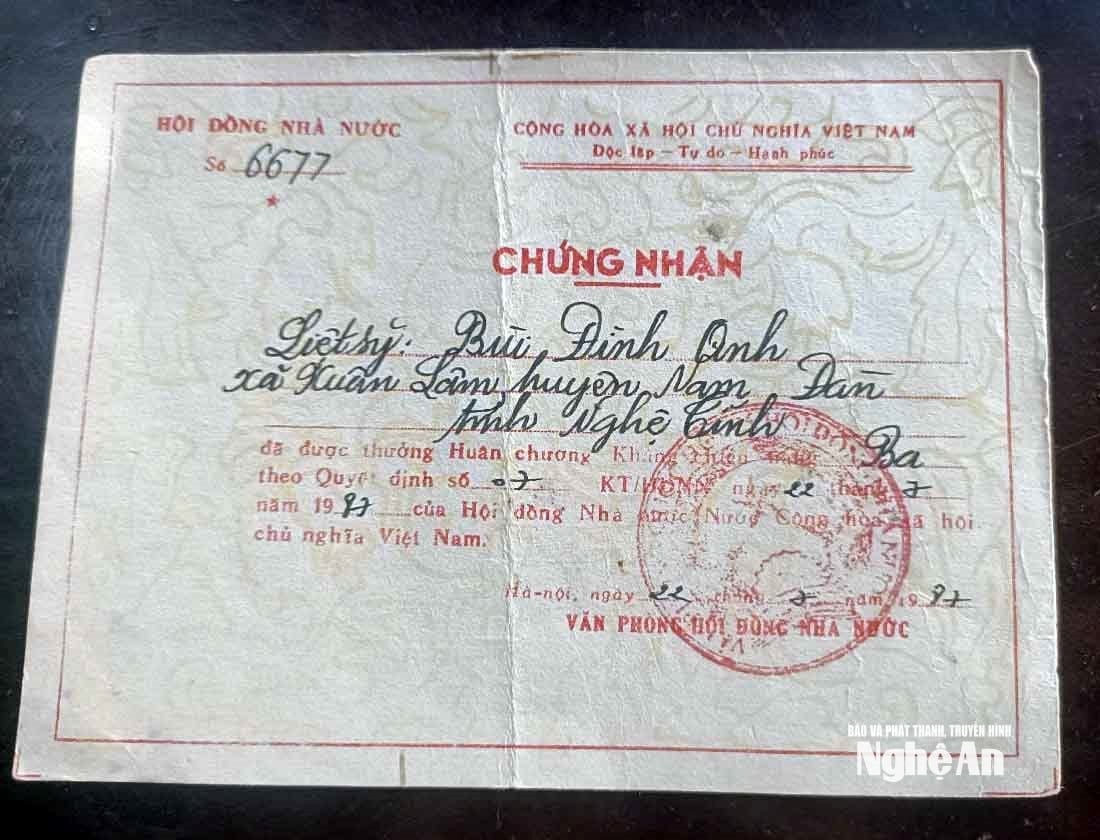 HỘI ĐỒNG NHÀ NƯỚC
Số 6677
CỘNG HÒA XÃ HỘI CHỦ NGHĨA VIỆT NAM
Độc lập - Tự do - Hạnh phúc
CHỨNG NHẬN
Liệt sỹ: Bùi Đình Anh
xã Xuân Lâm huyện Nam Đàn
tỉnh Nghệ Tĩnh
đã được thưởng Huân chương Kháng chiến hạng Ba
theo Quyết định số 07 KT/HĐNN ngày 22 tháng 7
năm 1987 của Hội đồng Nhà nước Nước Cộng hòa xã hội
chủ nghĩa Việt Nam.
Hà-nội, ngày 22 tháng 7 năm 1987
VĂN PHÒNG HỘI ĐỒNG NHÀ NƯỚC
BÁO VÀ PHÁT THANH, TRUYỀN HÌNH
Nghệ An